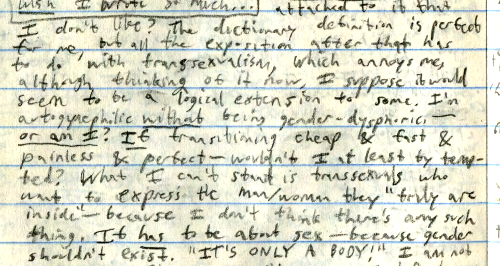 wish I wrote so much...] attached to it that
I don't like? The dictionary definition is perfect
for me, but all the exposition after that has
to do with transsexualism, which annoys me,
although thinking of it now, I suppose it would
seem to be a logical extension to some. I'm
autogynephilic without being gender-dysphoric—
or am I? If transitioning cheap & fast &
painless & perfect—wouldn't I at least by temp-
ted? What I can't stand is transsexuals who
want to express the man/woman they "truly are
inside"—because I don't think there's any such
thing. It has to be about sex—because gender
shouldn't exist. "IT'S ONLY A BODY!" I am not